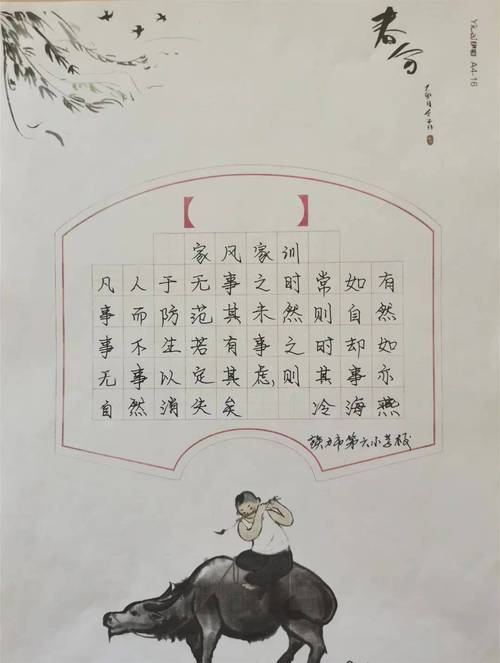 春分
A4-16
家风家训
凡人于无事之时常如有
事而防范其未然则自然
事不生若有事之时却如
无事以定其虑,则其事亦
自然消失矣 冷海燕
铁力市第六小学校